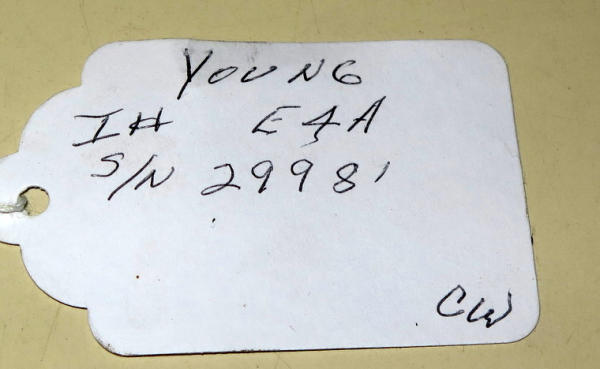 YOUNG
IH E4A
S/N 29981
CW